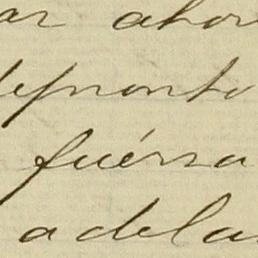 ar ahor
depronto
fuérsa
adela